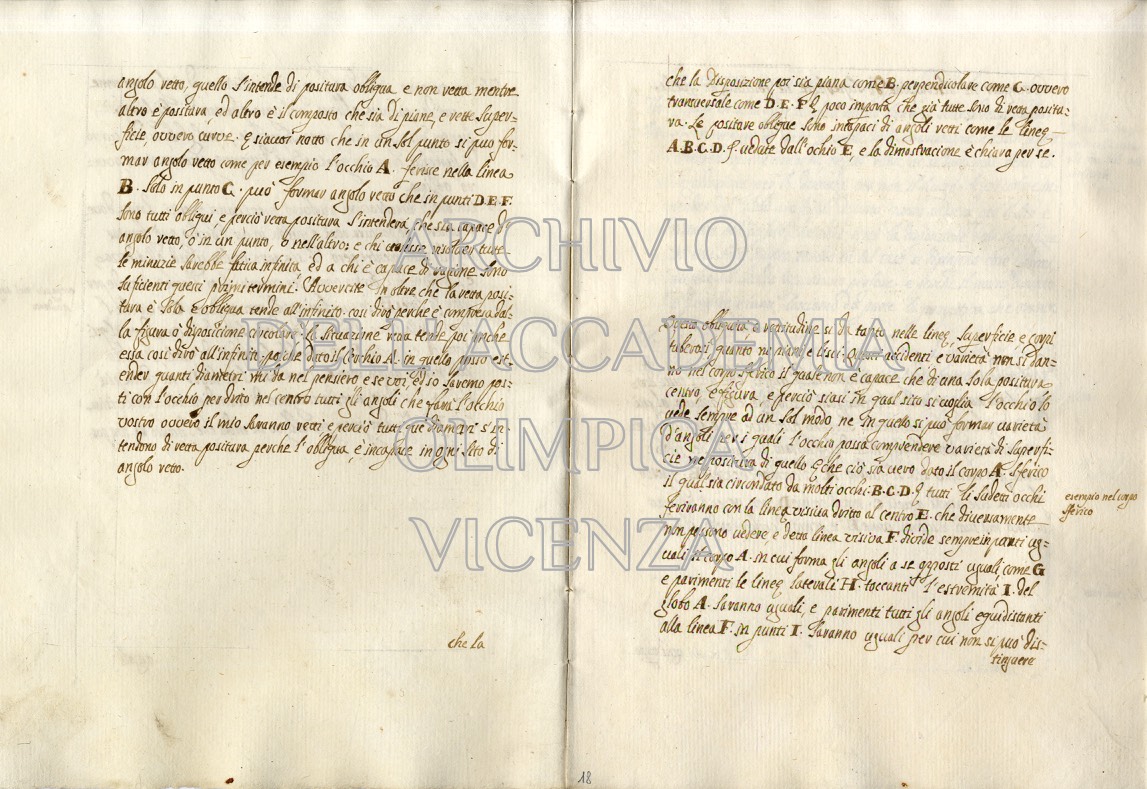 angolo retto, quello s'intende di positura obliqua e non retta mentre
altro è positura, ed altro è il composto che sia di piane, e rette super-
ficie, ovvero curve. E siaccor notto che in un sol punto si può for-
mar angolo retto come per esempio l'occhio A. ferisce nella linea
B. solo in punto C. può formar angolo retto che in punti D.E.F.
sono tutti obliqui e perciò retta positura s'intenderà che sia capace d
angolo retto, ò in un punto, o nell'altro: e chi volesse tutte
le minuzie sarebbe fatica infinita ed a chi è capace di ragione sono
sufficienti questi primi termini. Avvertite in oltre che la retta posi-
tura è sola e obliqua tende all'infinito. cosi dirò perche è composta dal-
la figura ò disposizione ò situazione retta tende poi anche
essa così dirò all'infinito. poiche dato il Cerchio A. in quello posso est-
ender quanti diametri mi da nel pensiero e se voi ed io saremo pos-
ti con l'occhio per dritto nel centro tutti gli angoli che farà l'occhio
vostro ovvero il mio saranno retti e perciò tutti que diametri s'in-
tendono di retta positura perche l'obliqua, è incapace in ogni sito di
angolo retto.
che la
che la disposizione poi sia piana come B. perpendicolare come C. ovvero
tranversale come D.E.F. poco importa che già tutte sono di retta positu-
ra. Le positure oblique sono incapaci di angoli retti come le linee
A.B.C.D. vedute dall'ochio E, e la dimostrazione è chiara per se.
Questa obliquità e rettitudine si dà tanto nelle linee, superficie e corpi
tuberosi quanto ne piani e lisci. Questi accidenti e varietà non si dan-
no nel corpo sferico il quale non è capace che di una sola positura
centro, e figura, e perciò siasi in qual sito si voglia l'occhio lo
vede sempre ad un sol modo ne in quello si può formar varietà
d'angoli per i quali l'occhio possa comprendere varietà di superfi-
cie ne positura di quello e che ciò sia vero dato il corpo A. sferico
il qual sia circondato da molti occhi B.C.D. tutti li sudetti occhi
feriranno con la linea visiva dritto al centro E. che diversamente
non possono vedere, e detta linea visiva F. divide sempre in parti ug-
uali il corpo A. in cui forma gli angoli a se opposti uguali, come G
e parimenti le linee laterali H. toccanti l'estremità I. del
globo A. saranno uguali, e parimenti tutti gli angoli equidistanti
alla linea F. in punti I. saranno uguali per cui non si può dis-
tinguere
esempio nel corpo
sferico
18
ARCHIVIO
DELL'ACCADEMIA
OLIMPICA
VICENZA